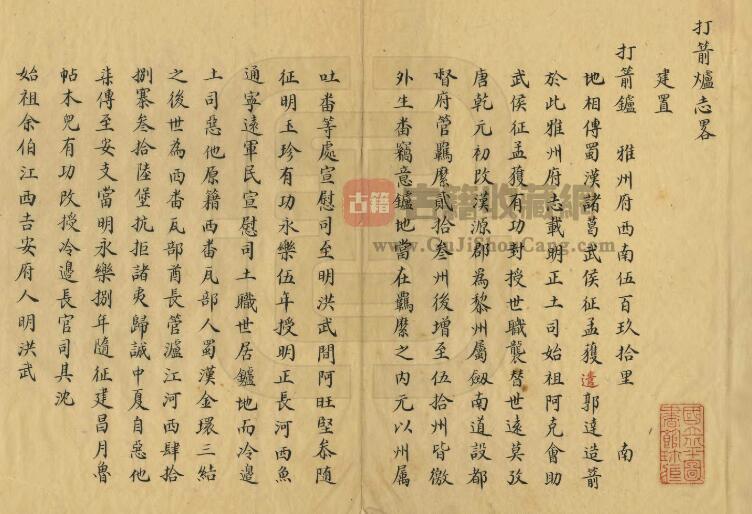 打箭爐志畧
建置
打箭鑪 雅州府西南伍百玖拾里 南
地相傳蜀漢諸葛武侯征孟獲遣郭達造箭
於此雅州府志載明正土司始祖阿克會助
武侯征孟獲有功封授世職襲替世遠莫攷
唐乾元初改漢源郡為黎州屬劔南道設都
督府管羈縻貳拾叁州後增至伍拾州皆徼
外生番竊意鑪地當在羈縻之內元以州屬
吐番等處宣慰司至明洪武間阿旺堅叅隨
征明玉珍有功永樂伍年授明正長河西魚
通寧遠軍民宣慰司土職世居鑪地而冷邊
土司惡他原籍西番瓦部人蜀漢金環三結
之後世為西番瓦部酋長管瀘江河西肆拾
捌寨叁拾陸堡抗拒諸夷歸誠中夏自惡他
柒傳至安支當明永樂捌年隨征建昌月魯
帖木兒有功改授冷邊長官司其沈
始祖余伯江西吉安府人明洪武
古籍
古籍收藏網
www.GuJiShouCang.com